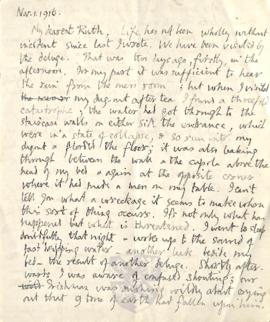 Nov. 1. 1916.
My dearest Ruth, Life has not been wholly without
incident since last I wrote. We have been visited by
the deluge. That was two days ago, firstly, in the
afternoon. For my part it was sufficient to hear
the rain from the mess room; but when I visited
my dug-out after tea I found a threefold
catastrophe; the water had got through to the
staircase walls on either side the entrance, which
were in a state of collapse, & so ran into my
dugout & flooded the floor; it was also leaking
through between the wall & the cupola above the
head of my bed & again at the opposite corner
where it had made a mess on my table. I can't
tell you what a wreckage it seems to make when
this sort of thing occurs. It's not only what has
happened but what is threatened. I went to sleep
doubtfully that night - woke up to the sound of
fast dripping water - another leak beside my
bed - the result of another deluge. Shortly after
wards I was aware of confused shouting & our
Irishman was rushing wildly about crying
out that 9 tons of earth had fallen upon him.